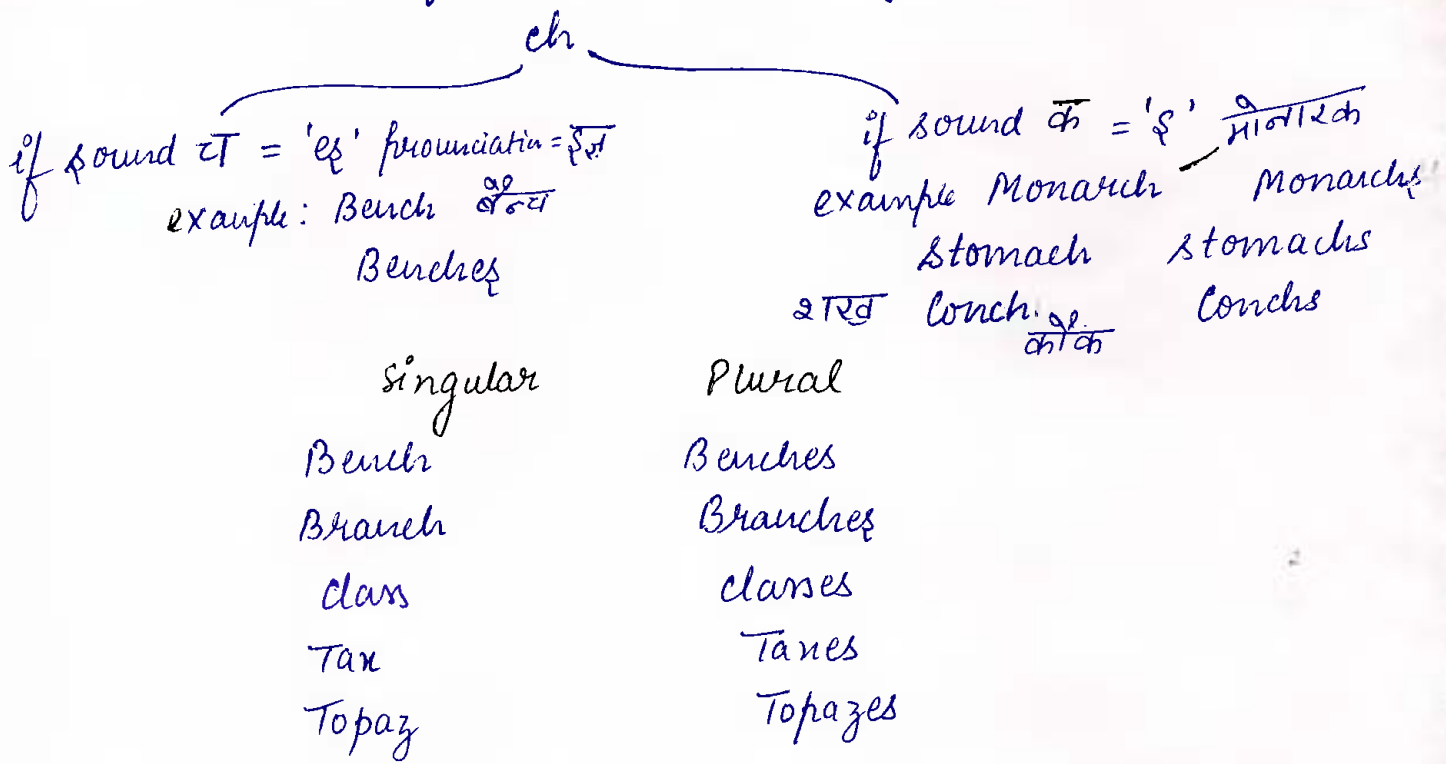 ch
if sound च = 'es' pronunciatin = इज़
example: Bench बैन्च
Benches
if sound क = 's' मोनारक
example Monarch Monarchs
Stomach Stomachs
शख Conch. कोंक Conchs
Singular Plural
Bench Benches
Branch Branches
Class Classes
Tax Taxes
Topaz Topazes